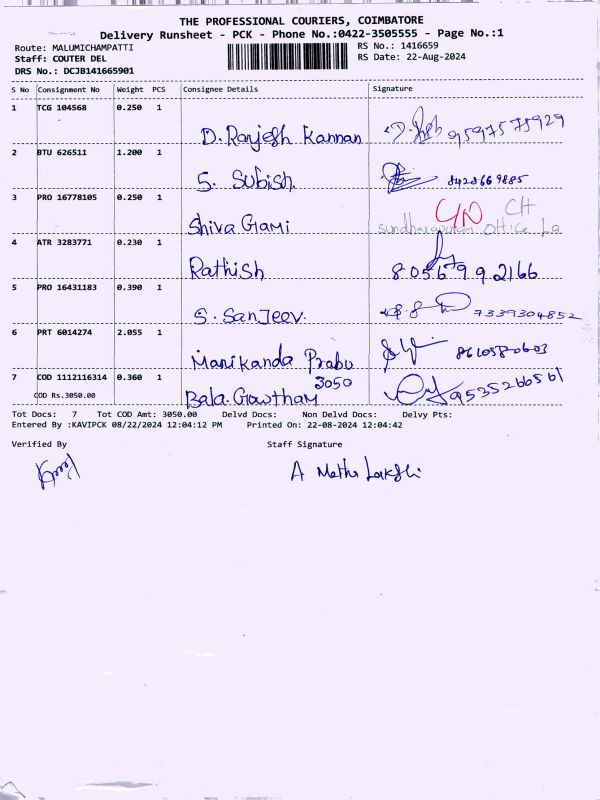 THE PROFESSIONAL COURIERS, COIMBATORE
Delivery Runsheet - PCK - Phone No.:0422-3505555 - Page No.:1
Route: MALUMICHAMPATTI RS No.: 1416659
Staff: COUTER DEL RS Date: 22-Aug-2024
DRS No.: DCJB141665901
S No Consignment No Weight PCS Consignee Details Signature
1 TCG 104568 0.250 1
D. Ranjesh Kannan 9597575929
2 BTU 626511 1.200 1
S. Subish. 8428669885
3 PRO 16778105 0.250 1
C/N CH
Shiva Gami Office
4 ATR 3283771 0.230 1
Rathish 8056992166
5 PRO 16431183 0.390 1
S. Sanjeev. 7339304852
6 PRT 6014274 2.055 1
Manikanda Prabu
7 COD 1112116314 0.360 1 3050
COD Rs.3050.00 Bala. Gowtham 9535266561
Tot Docs: 7 Tot COD Amt: 3050.00 Delvd Docs: Non Delvd Docs: Delvy Pts:
Entered By :KAVIPCK 08/22/2024 12:04:12 PM Printed On: 22-08-2024 12:04:42
Verified By Staff Signature
A